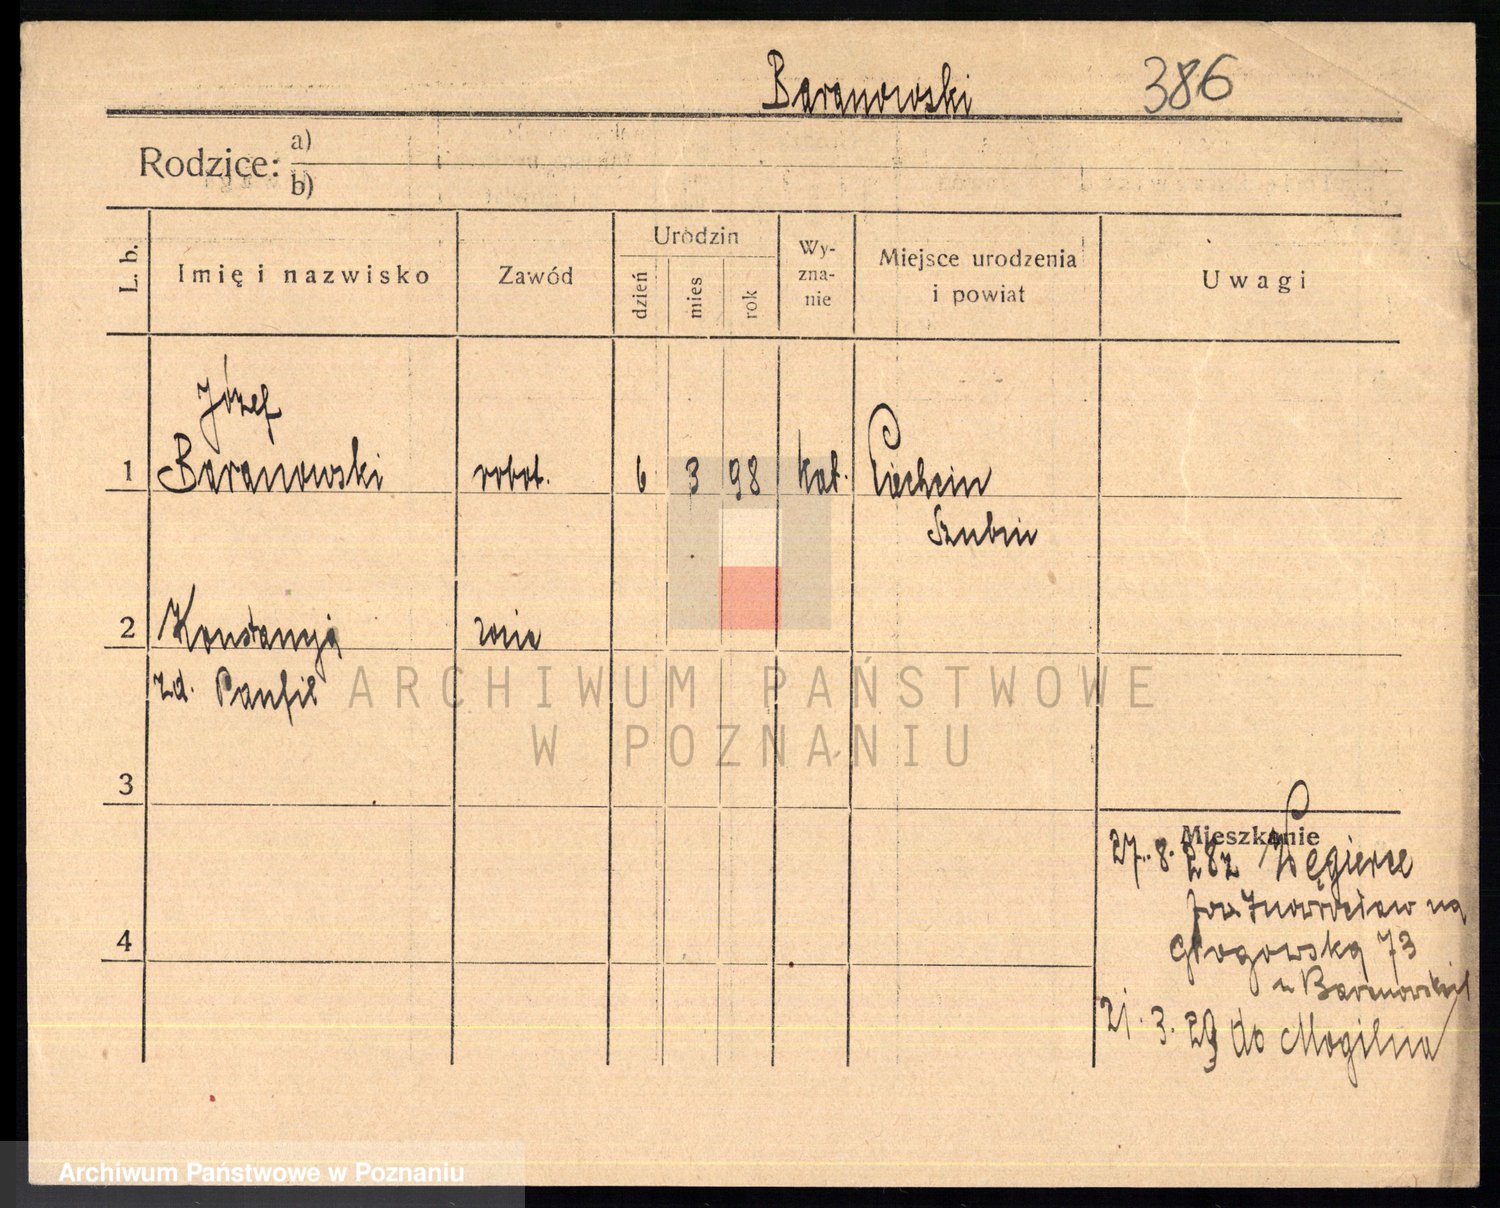 Baranowski 386
Rodzice: a)
b)
L. b.
Imię i nazwisko
Zawód
Urodzin
dzień
mies
rok
Wy-
zna-
nie
Miejsce urodzenia
i powiat
Uwagi
Józef
1 Baranowski robot. 6 3 98 kat. Piechcin
Szubin
2 Konstancja żona
zd. Panfil
ARCHIWUM PAŃSTWOWE
W POZNANIU
3
Mieszkanie
27.8.28 z Węgierce
pow. Inowrocław na
4
Głogowską 73
u Baranowskich
21.3.29 do Mogilna
Archiwum Państwowe w Poznaniu